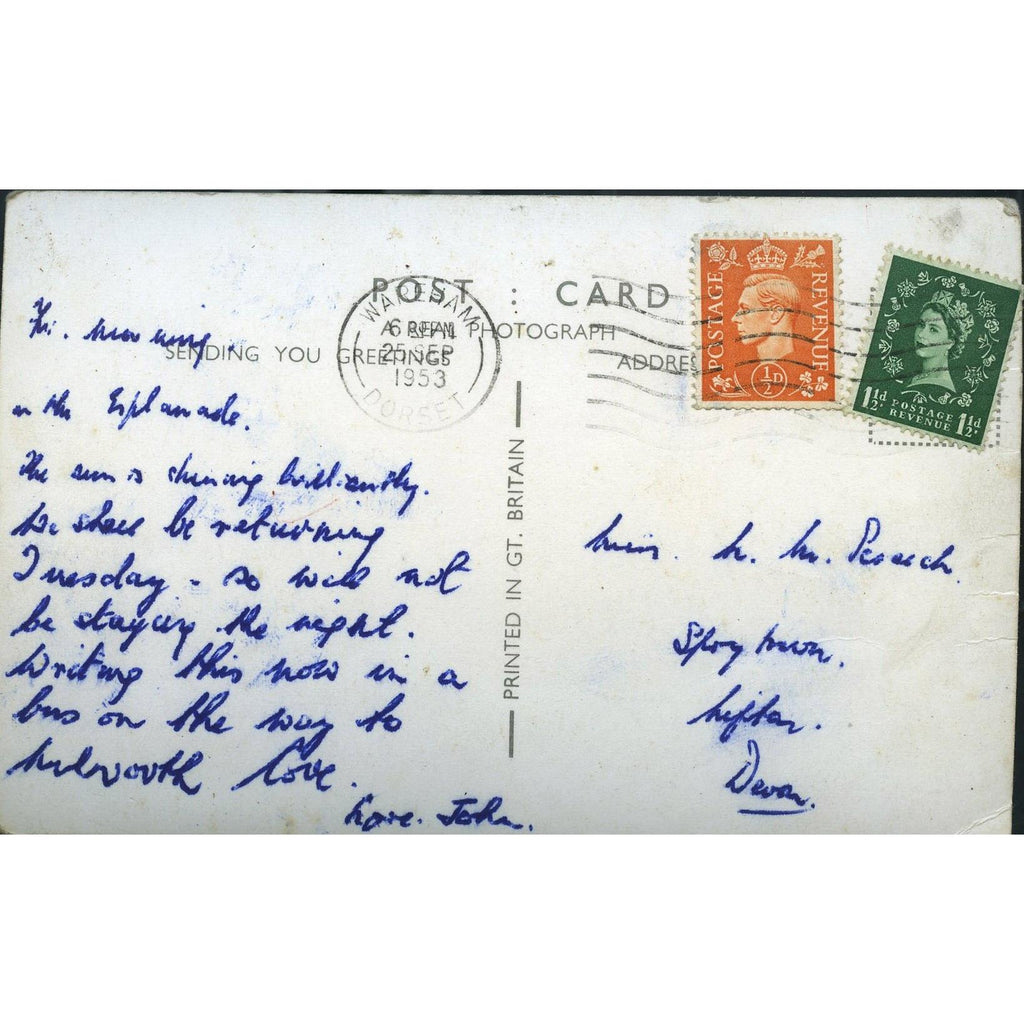 POST : CARD
A REAL PHOTOGRAPH
SENDING YOU GREETINGS
ADDRES
WAREHAM
6 PM
25 SEP
1953
DORSET
POSTAGE
REVENUE
½D
1½d POSTAGE REVENUE 1½d
PRINTED IN GT. BRITAIN
morning
on the Esplanade.
The sun is shining brilliantly.
We shall be returning
Tuesday - so will not
be staying the night.
Writing this now in a
bus on the way to
Lulworth Cove.
Love. John.
Miss. M.
Lifton.
Devon.